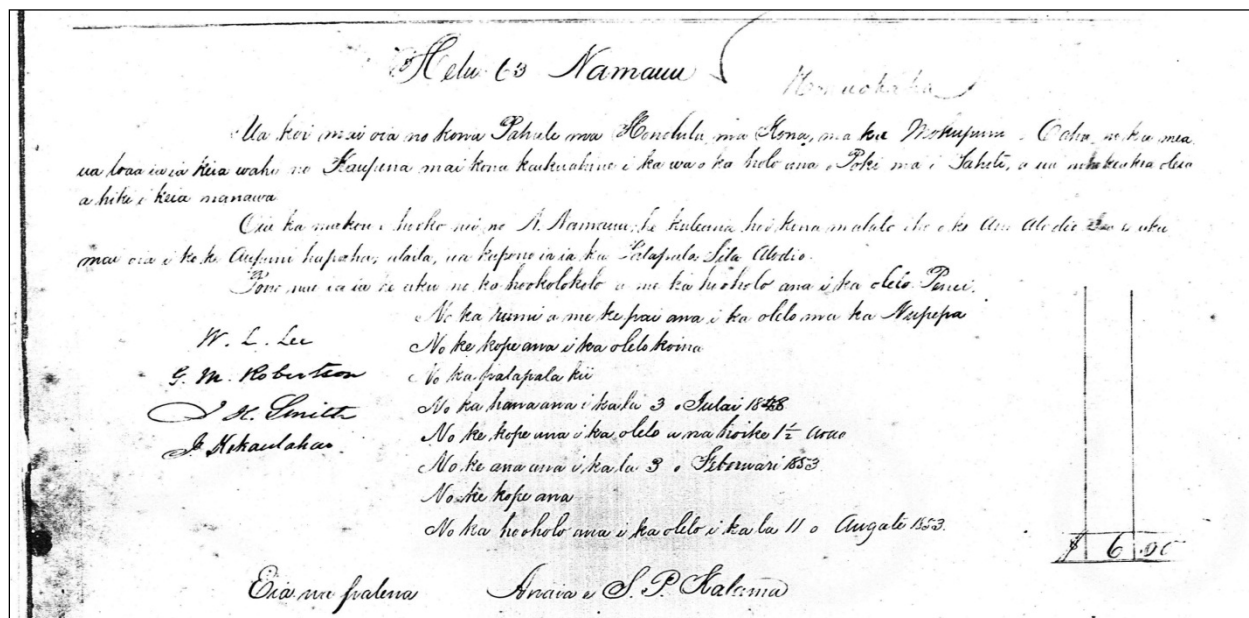 Helu 63 Namauu
Honuakaha
Ua koi mai oia no kona Pahale ma Honolulu, ma Kona, ma ka Mokupuni o Oahu, no ka mea
ua loaa ia ia keia wahi no Kaupena mai kona kaikuahine i ka wa o ka holo ana o Poki ma i Tahiti, a ua noho oia
a hiki i keia manawa
Oia ka makou e hooholo nei no A. Namauu, he kuleana kona malalo iho o ke Ano Alodio a e uku
mai oia i ko ke Aupuni hapaha; alaila, ua kupono ia ia ka Palapala Sila Alodio.
Pono nae ia ia ke uku no ka hookolokolo a me ka hooholo ana i ka olelo Penei.
No ka rumi a me ke pai ana i ka olelo ma ka Nupepa
W. L. Lee No ke kope ana i ka olelo koina
G. M. Robertson No ka palapala kii
J. H. Smith No ka hana ana i ka la 3 o Iulai 1848
J. Kekaulahao No ke kope ana i ka olelo a na hoike 1½ aoao
No ke ana ana i ka la 3 o Feberuari 1853
No ke kope ana
No ka hooholo ana i ka olelo i ka la 11 o Augate 1853.
$ 6 00
Eia na palena Anaia e S. P. Kalama